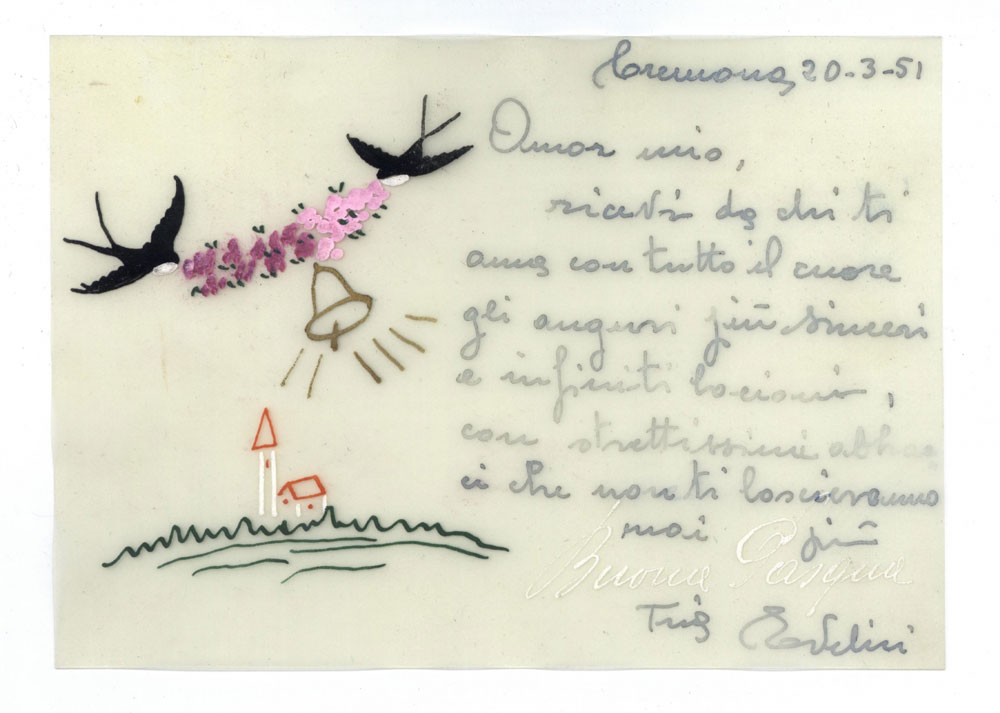 Cremona, 20-3-51
Amor mio,
ricevi da chi ti
ama con tutto il cuore
gli auguri più sinceri
e infiniti bacioni,
con strettissimi abbrac
ci che non ti lascieranno
mai più
Buona Pasqua
Tua Evelini